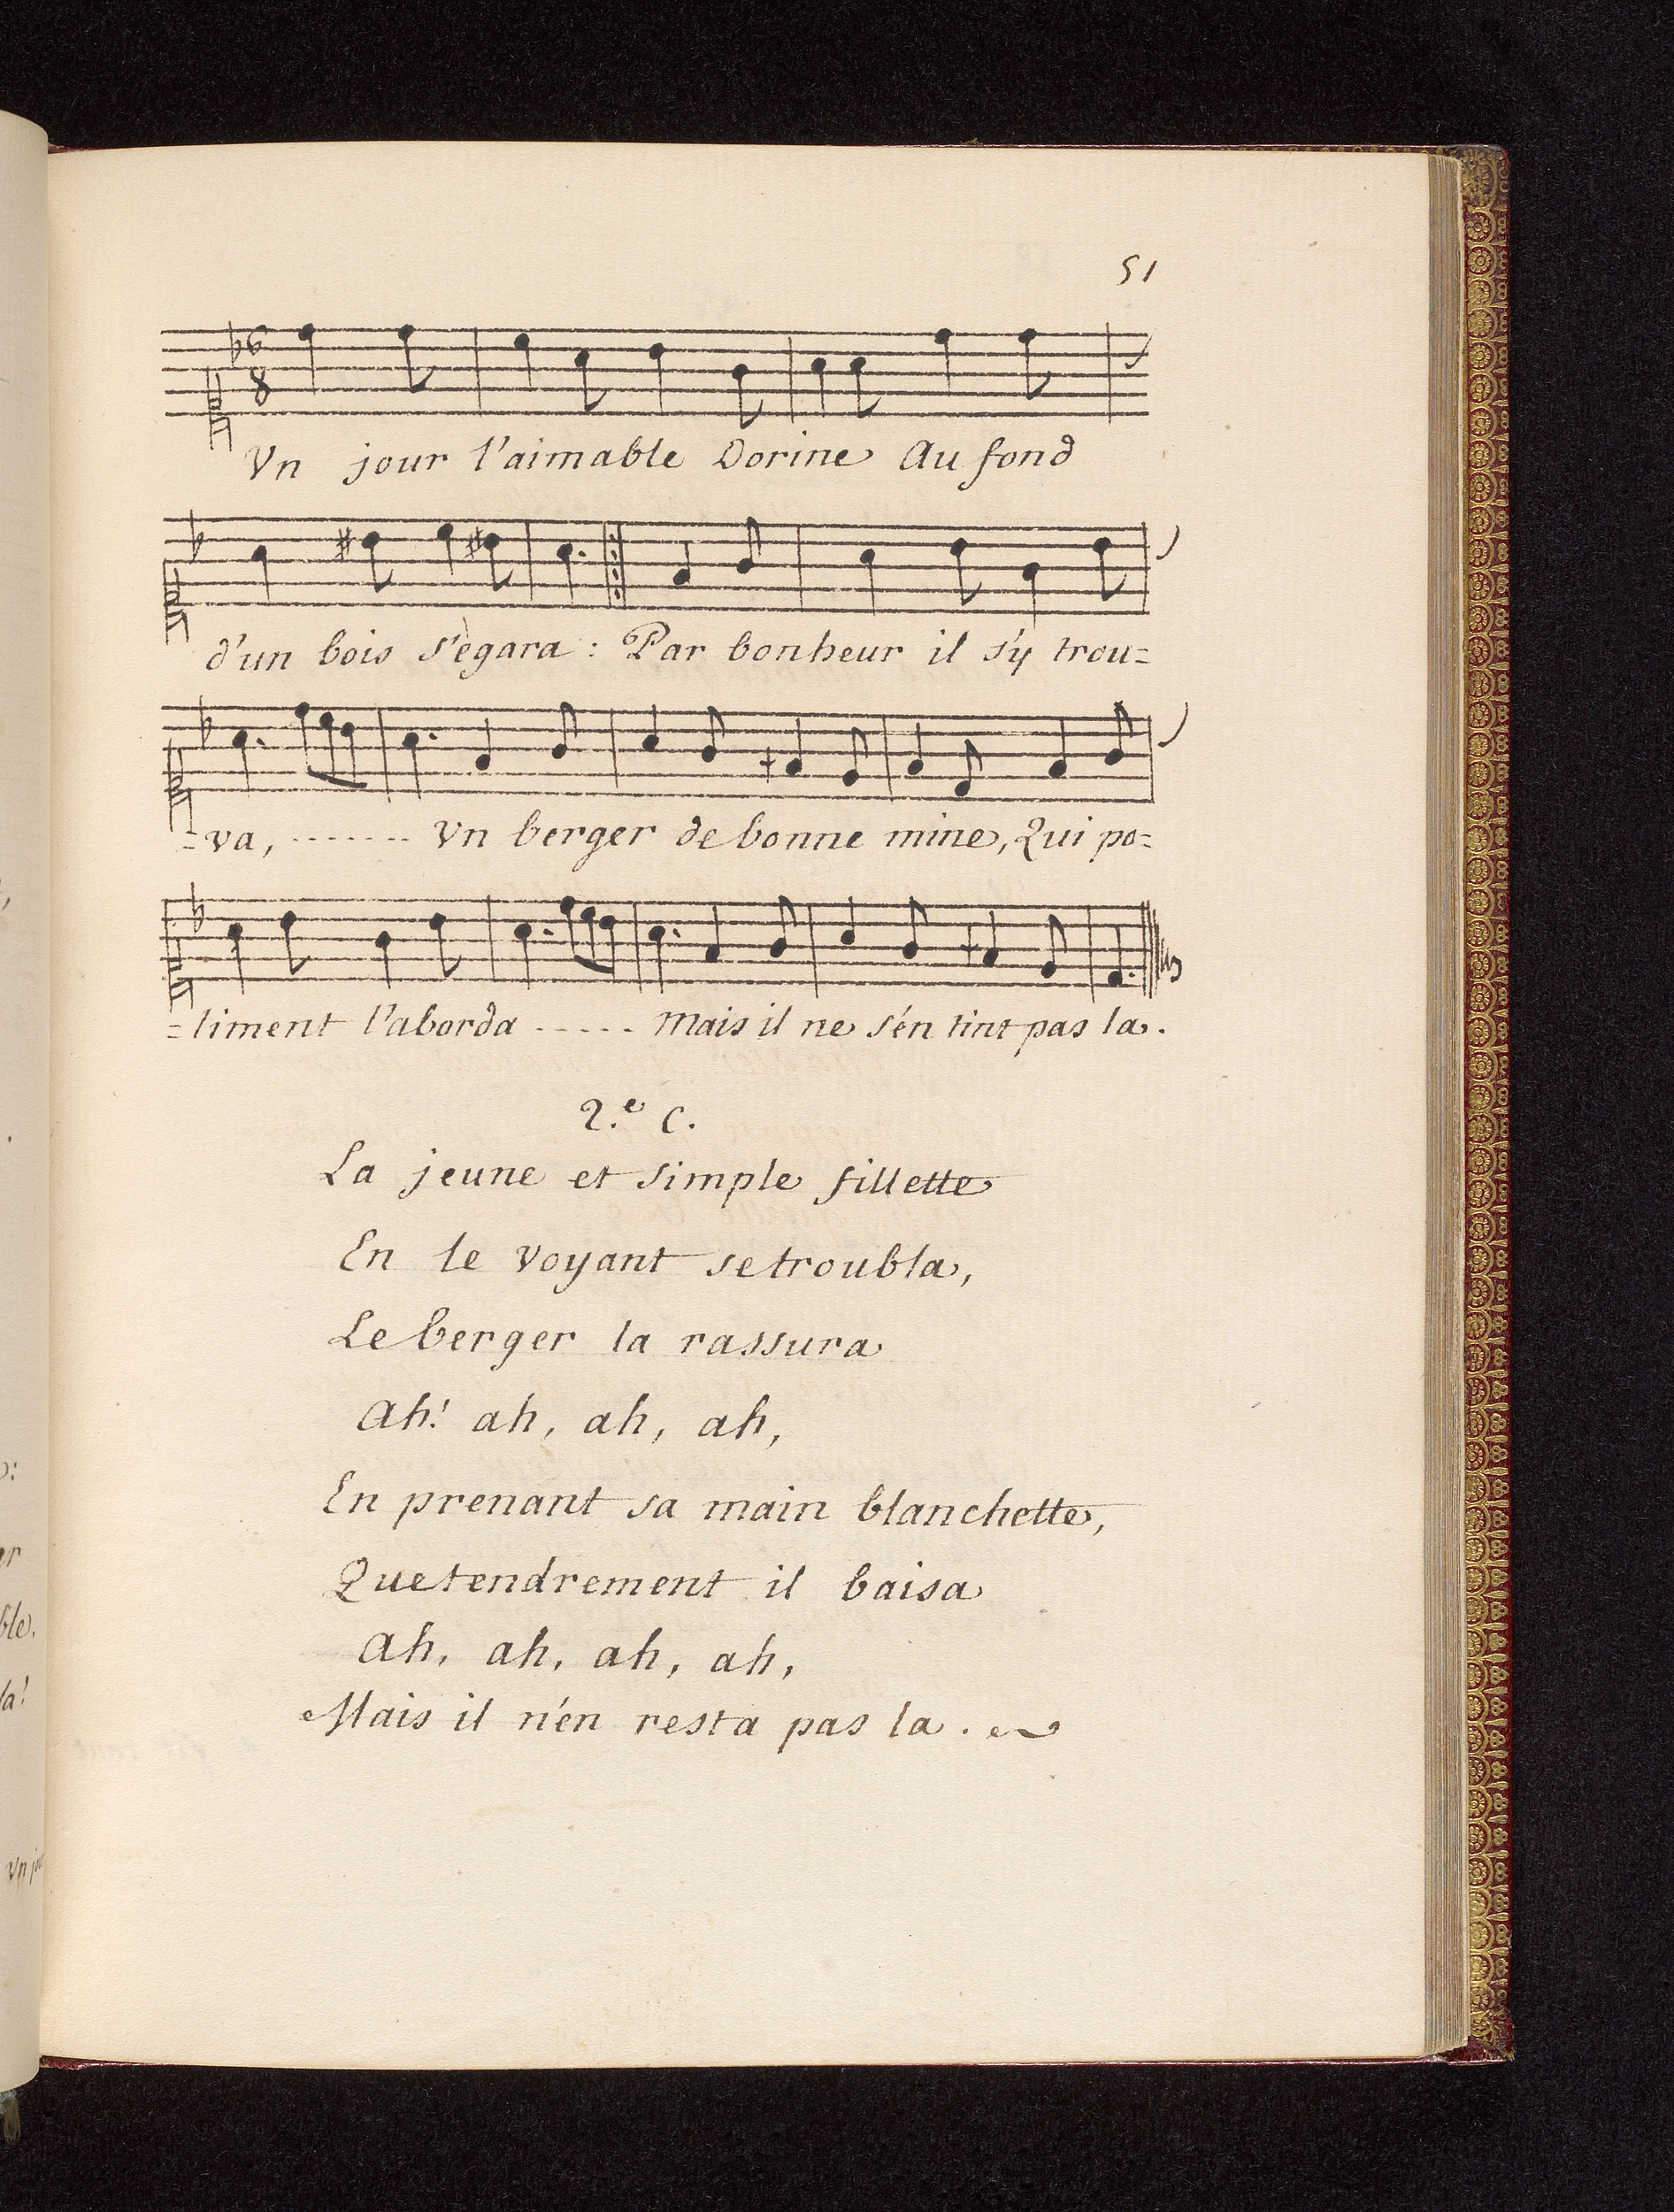 51
6
8
Vn jour l'aimable Dorine Au fond
d'un bois s'egara : Par bonheur il s'y trou=
=va, ········ Vn berger de bonne mine, Qui po=
=liment l'aborda ----- Mais il ne s'en tint pas la.
2.e C.
La jeune et simple fillette
En le voyant se troubla,
Le berger la rassura
Ah! ah, ah, ah,
En prenant sa main blanchette,
Que tendrement il baisa
Ah, ah, ah, ah,
Mais il n'en resta pas la.
er
ble.
la!
Vn jou